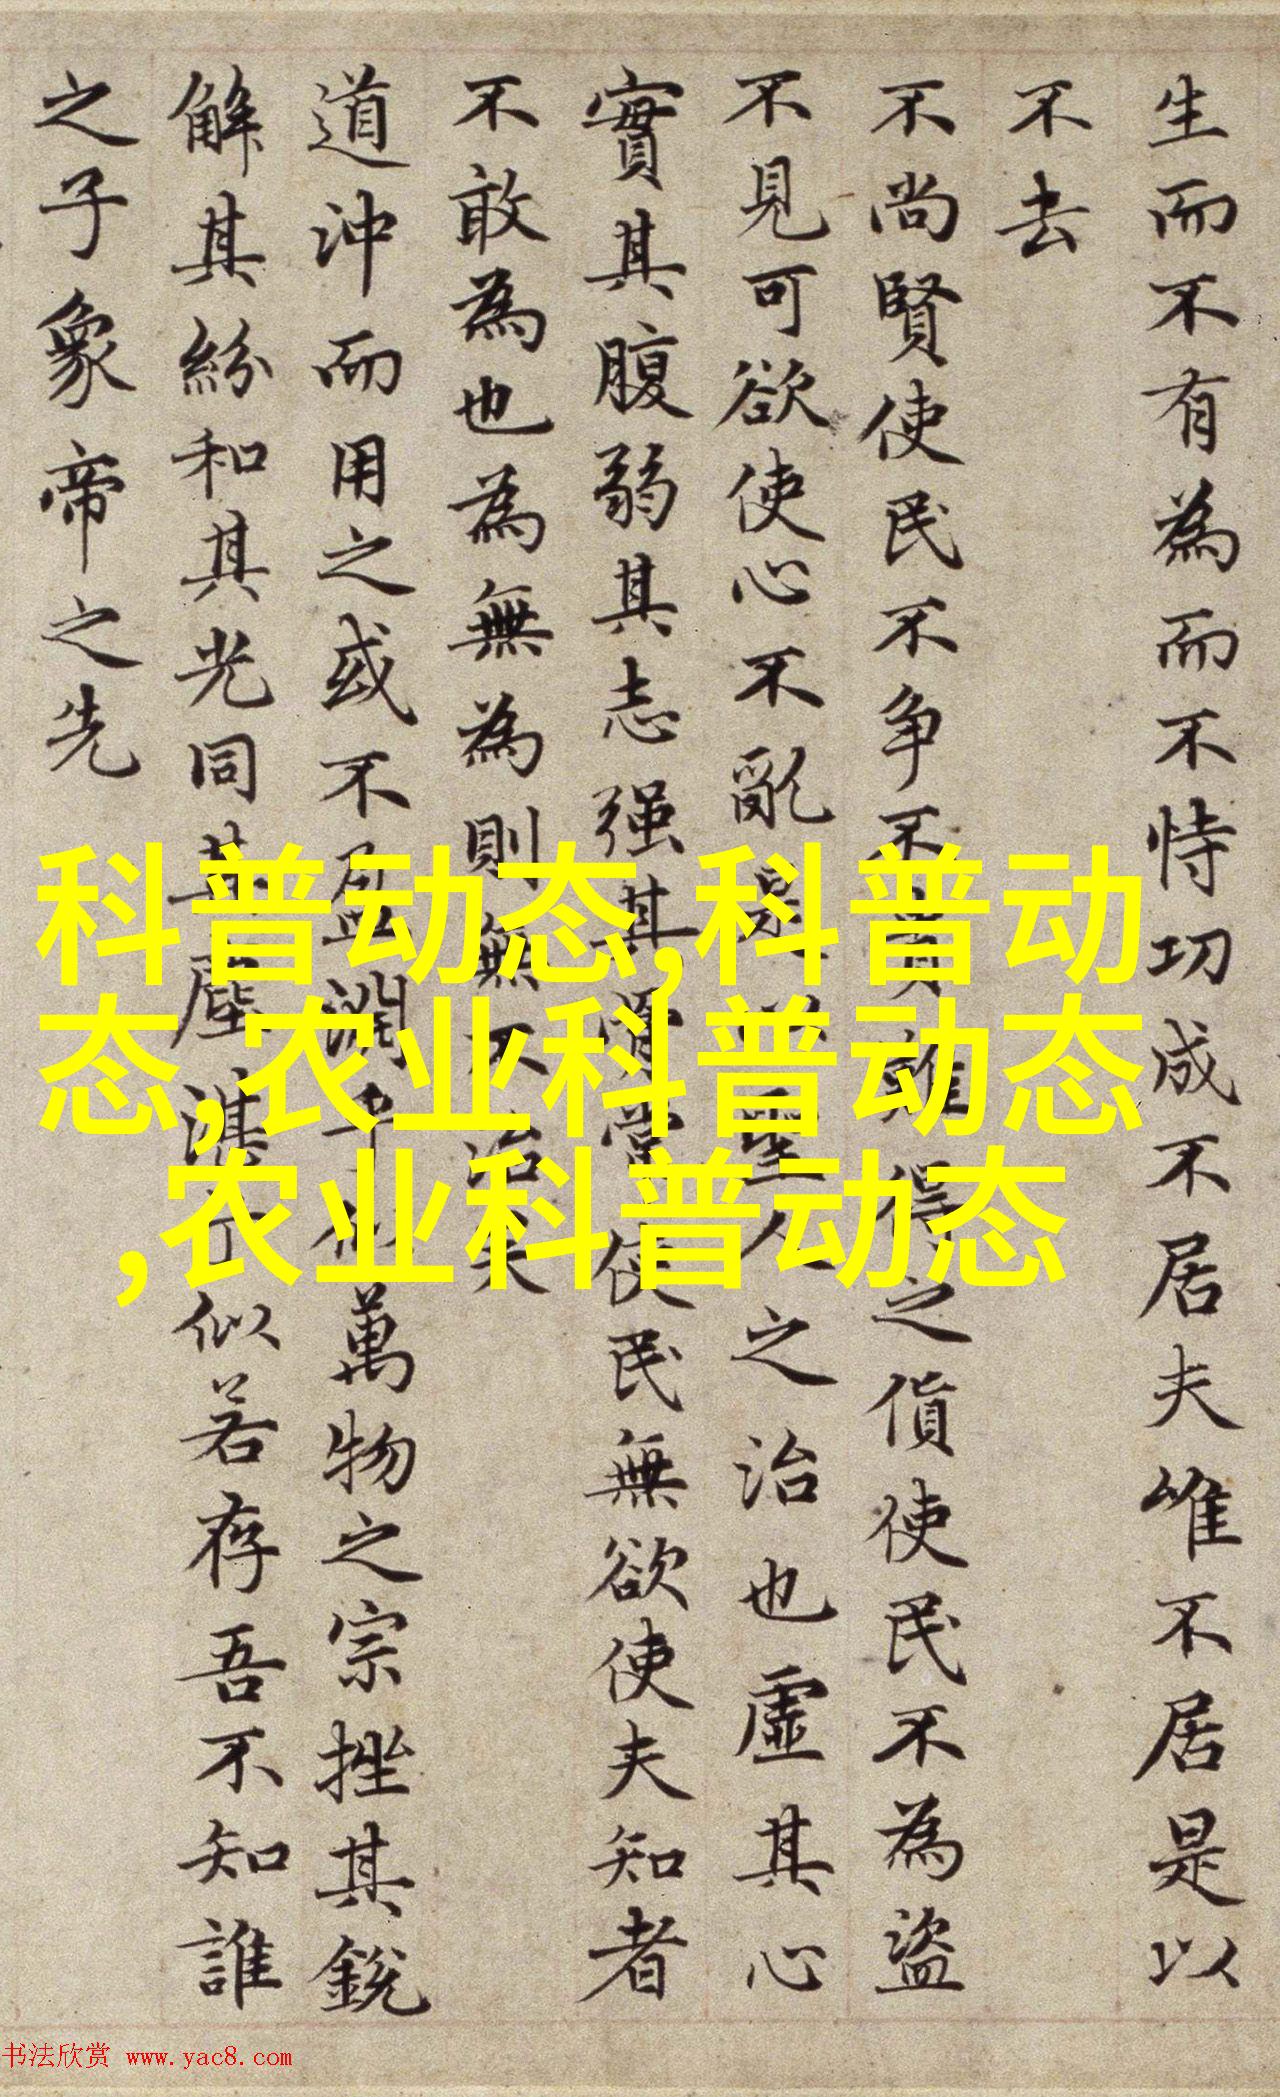 生而不有為而不恃功成不居夫唯不居是以
不去
不尚賢使民不争不貴難得之貨使民不為盗
不見可欲使心不亂是以聖人之治也虛其心
實其腹弱其志强其骨常使民無欲使夫知者
不敢為也為無為則無不治矣
道沖而用之或不盈淵乎似萬物之宗挫其銳
解其紛和其光同其塵湛兮似若存吾不知誰
之子象帝之先
科普动态,科普动
态,农业科普动态
,农业科普动态
书法欣赏 www.yac8.com